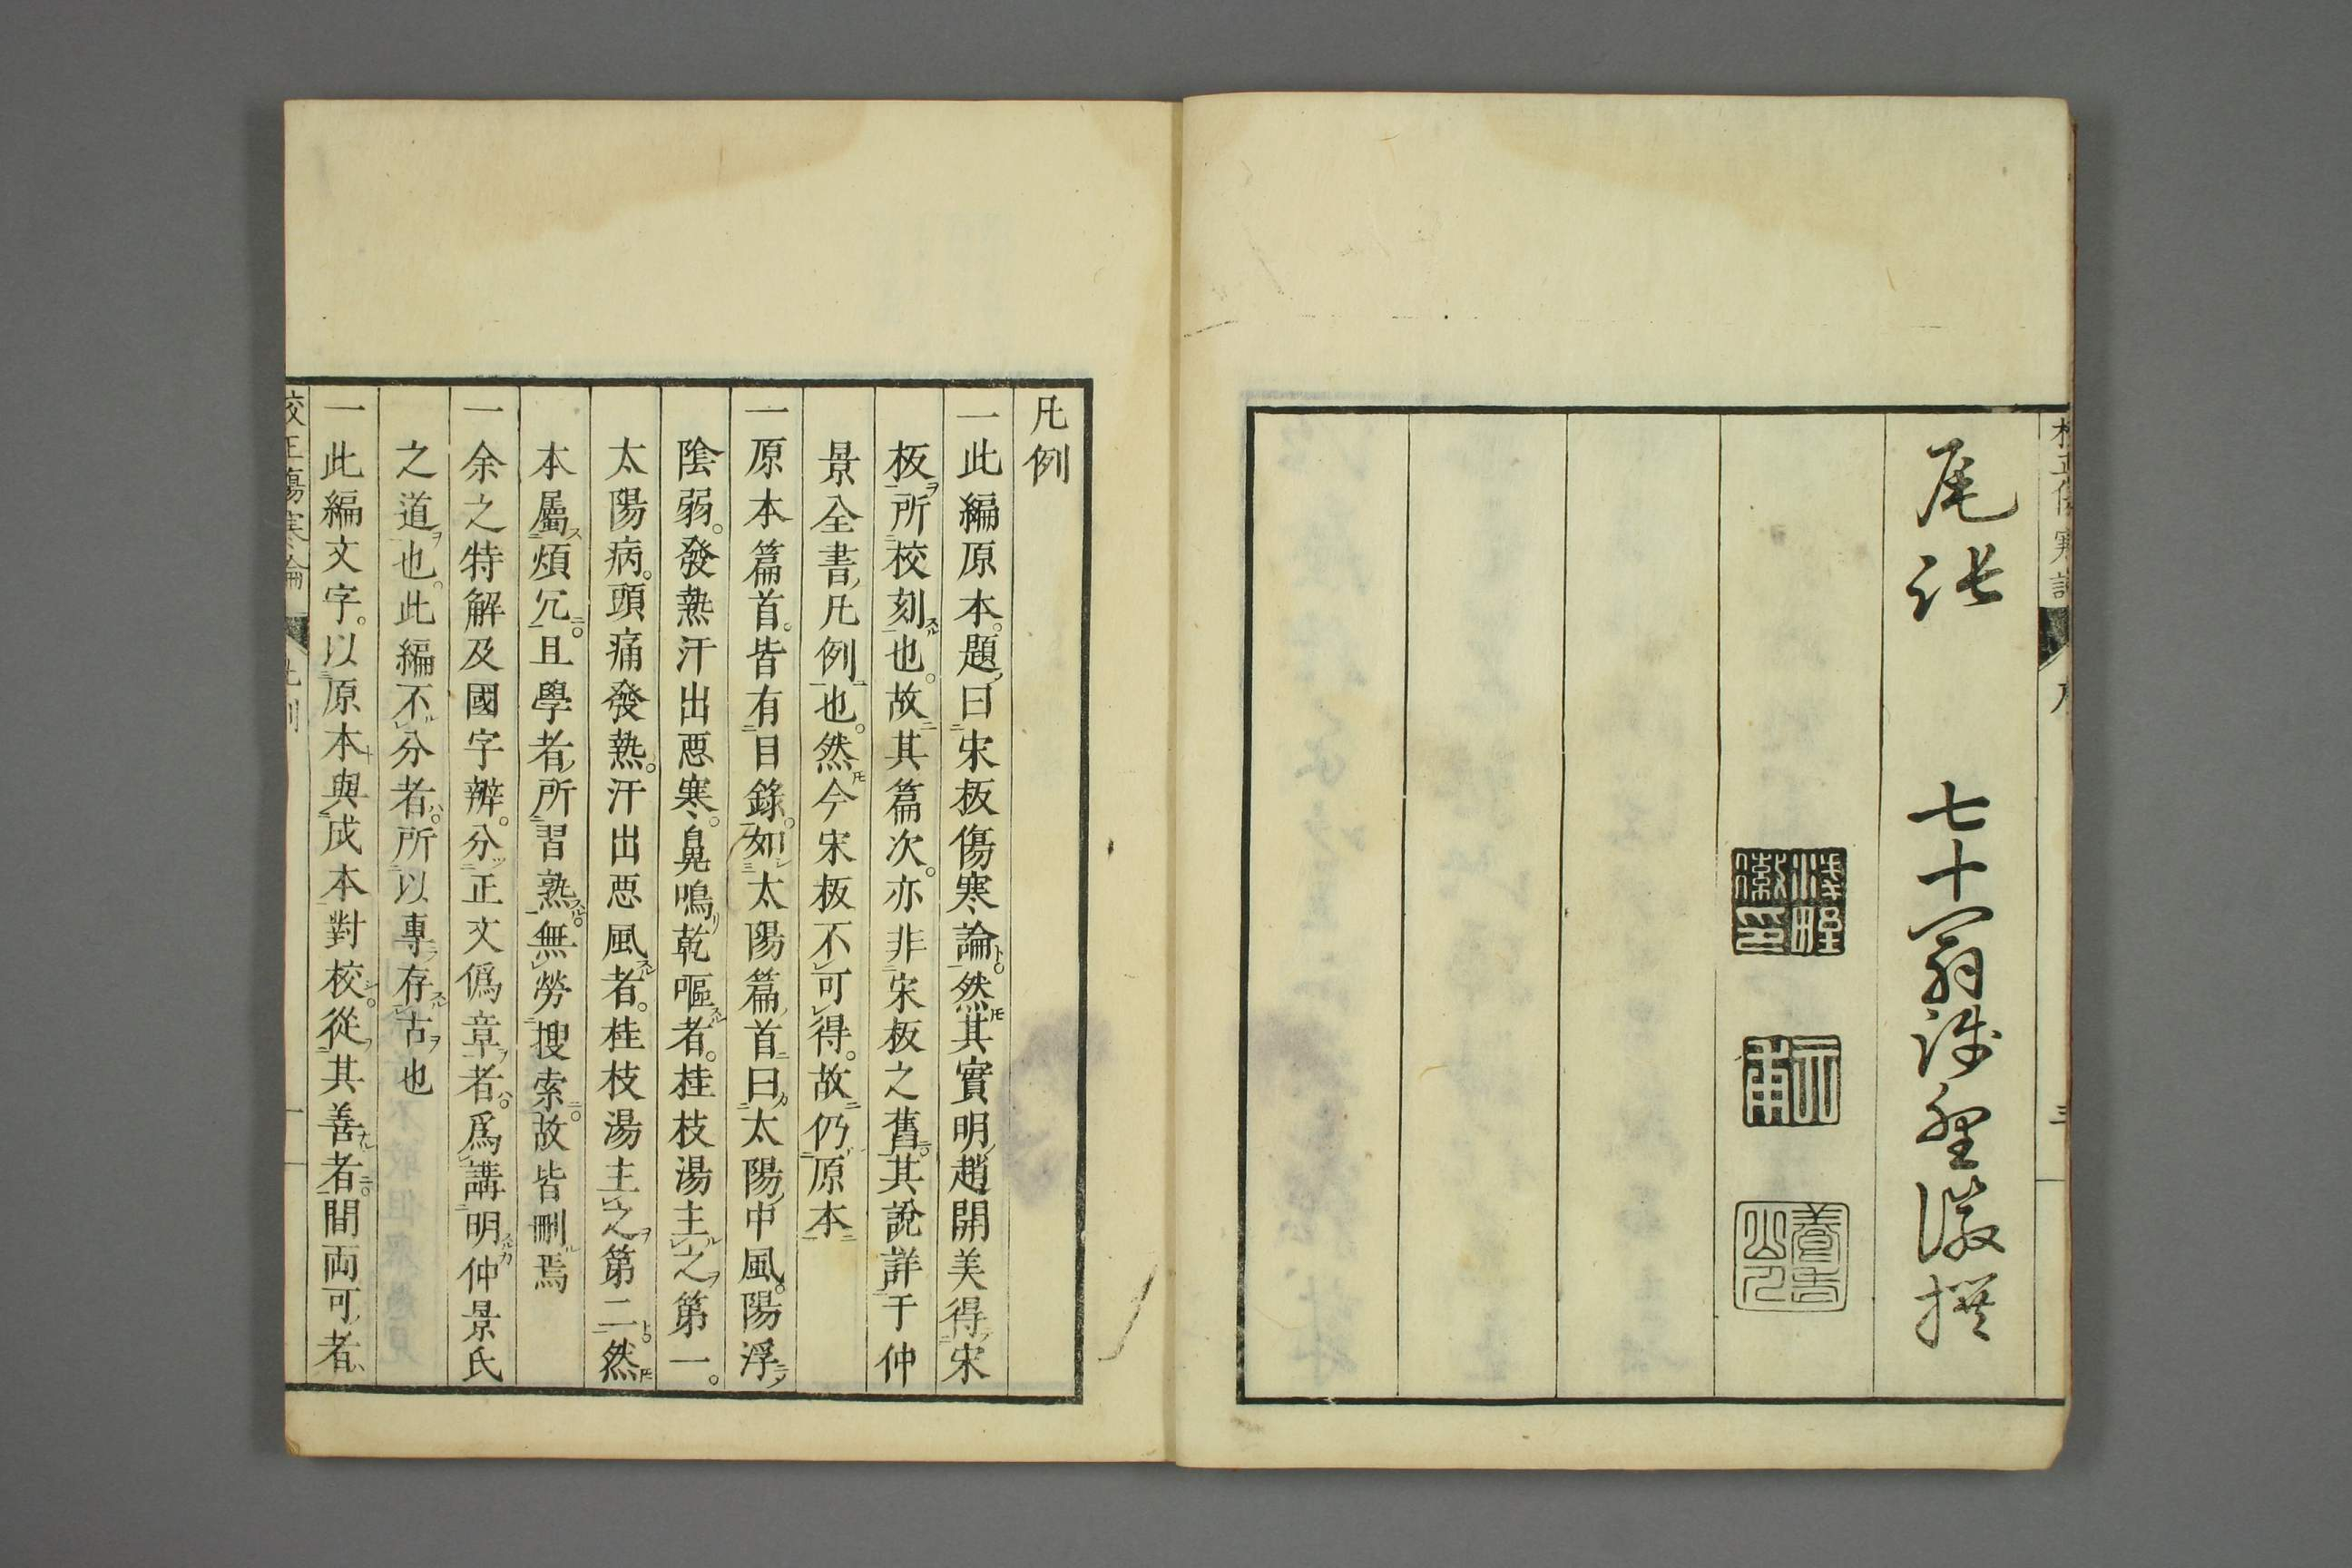 尾張　七十翁淺野徽撰
淺野徽印
養志山人
凡例
一此編原本。題曰宋板傷寒論。然其實明趙開美得宋
板所校刻也。故其篇次。亦非宋板之舊。其說詳于仲
景全書凡例也。然今宋板不可得。故仍原本
一原本篇首。皆有目錄。如太陽篇首曰太陽中風。陽浮
陰弱。發熱汗出惡寒。鼻鳴乾嘔者。桂枝湯主之第一。
太陽病。頭痛發熱。汗出惡風者。桂枝湯主之第二。然
本屬煩冗。且學者所習熟。無勞搜索。故皆刪焉
一余之特解及國字辨。分正文僞章者。爲講明仲景氏
之道也。此編不分者。所以專存古也
一此編文字。以原本與成本對校。從其善者。間両可者
校正傷寒論　凡例　一